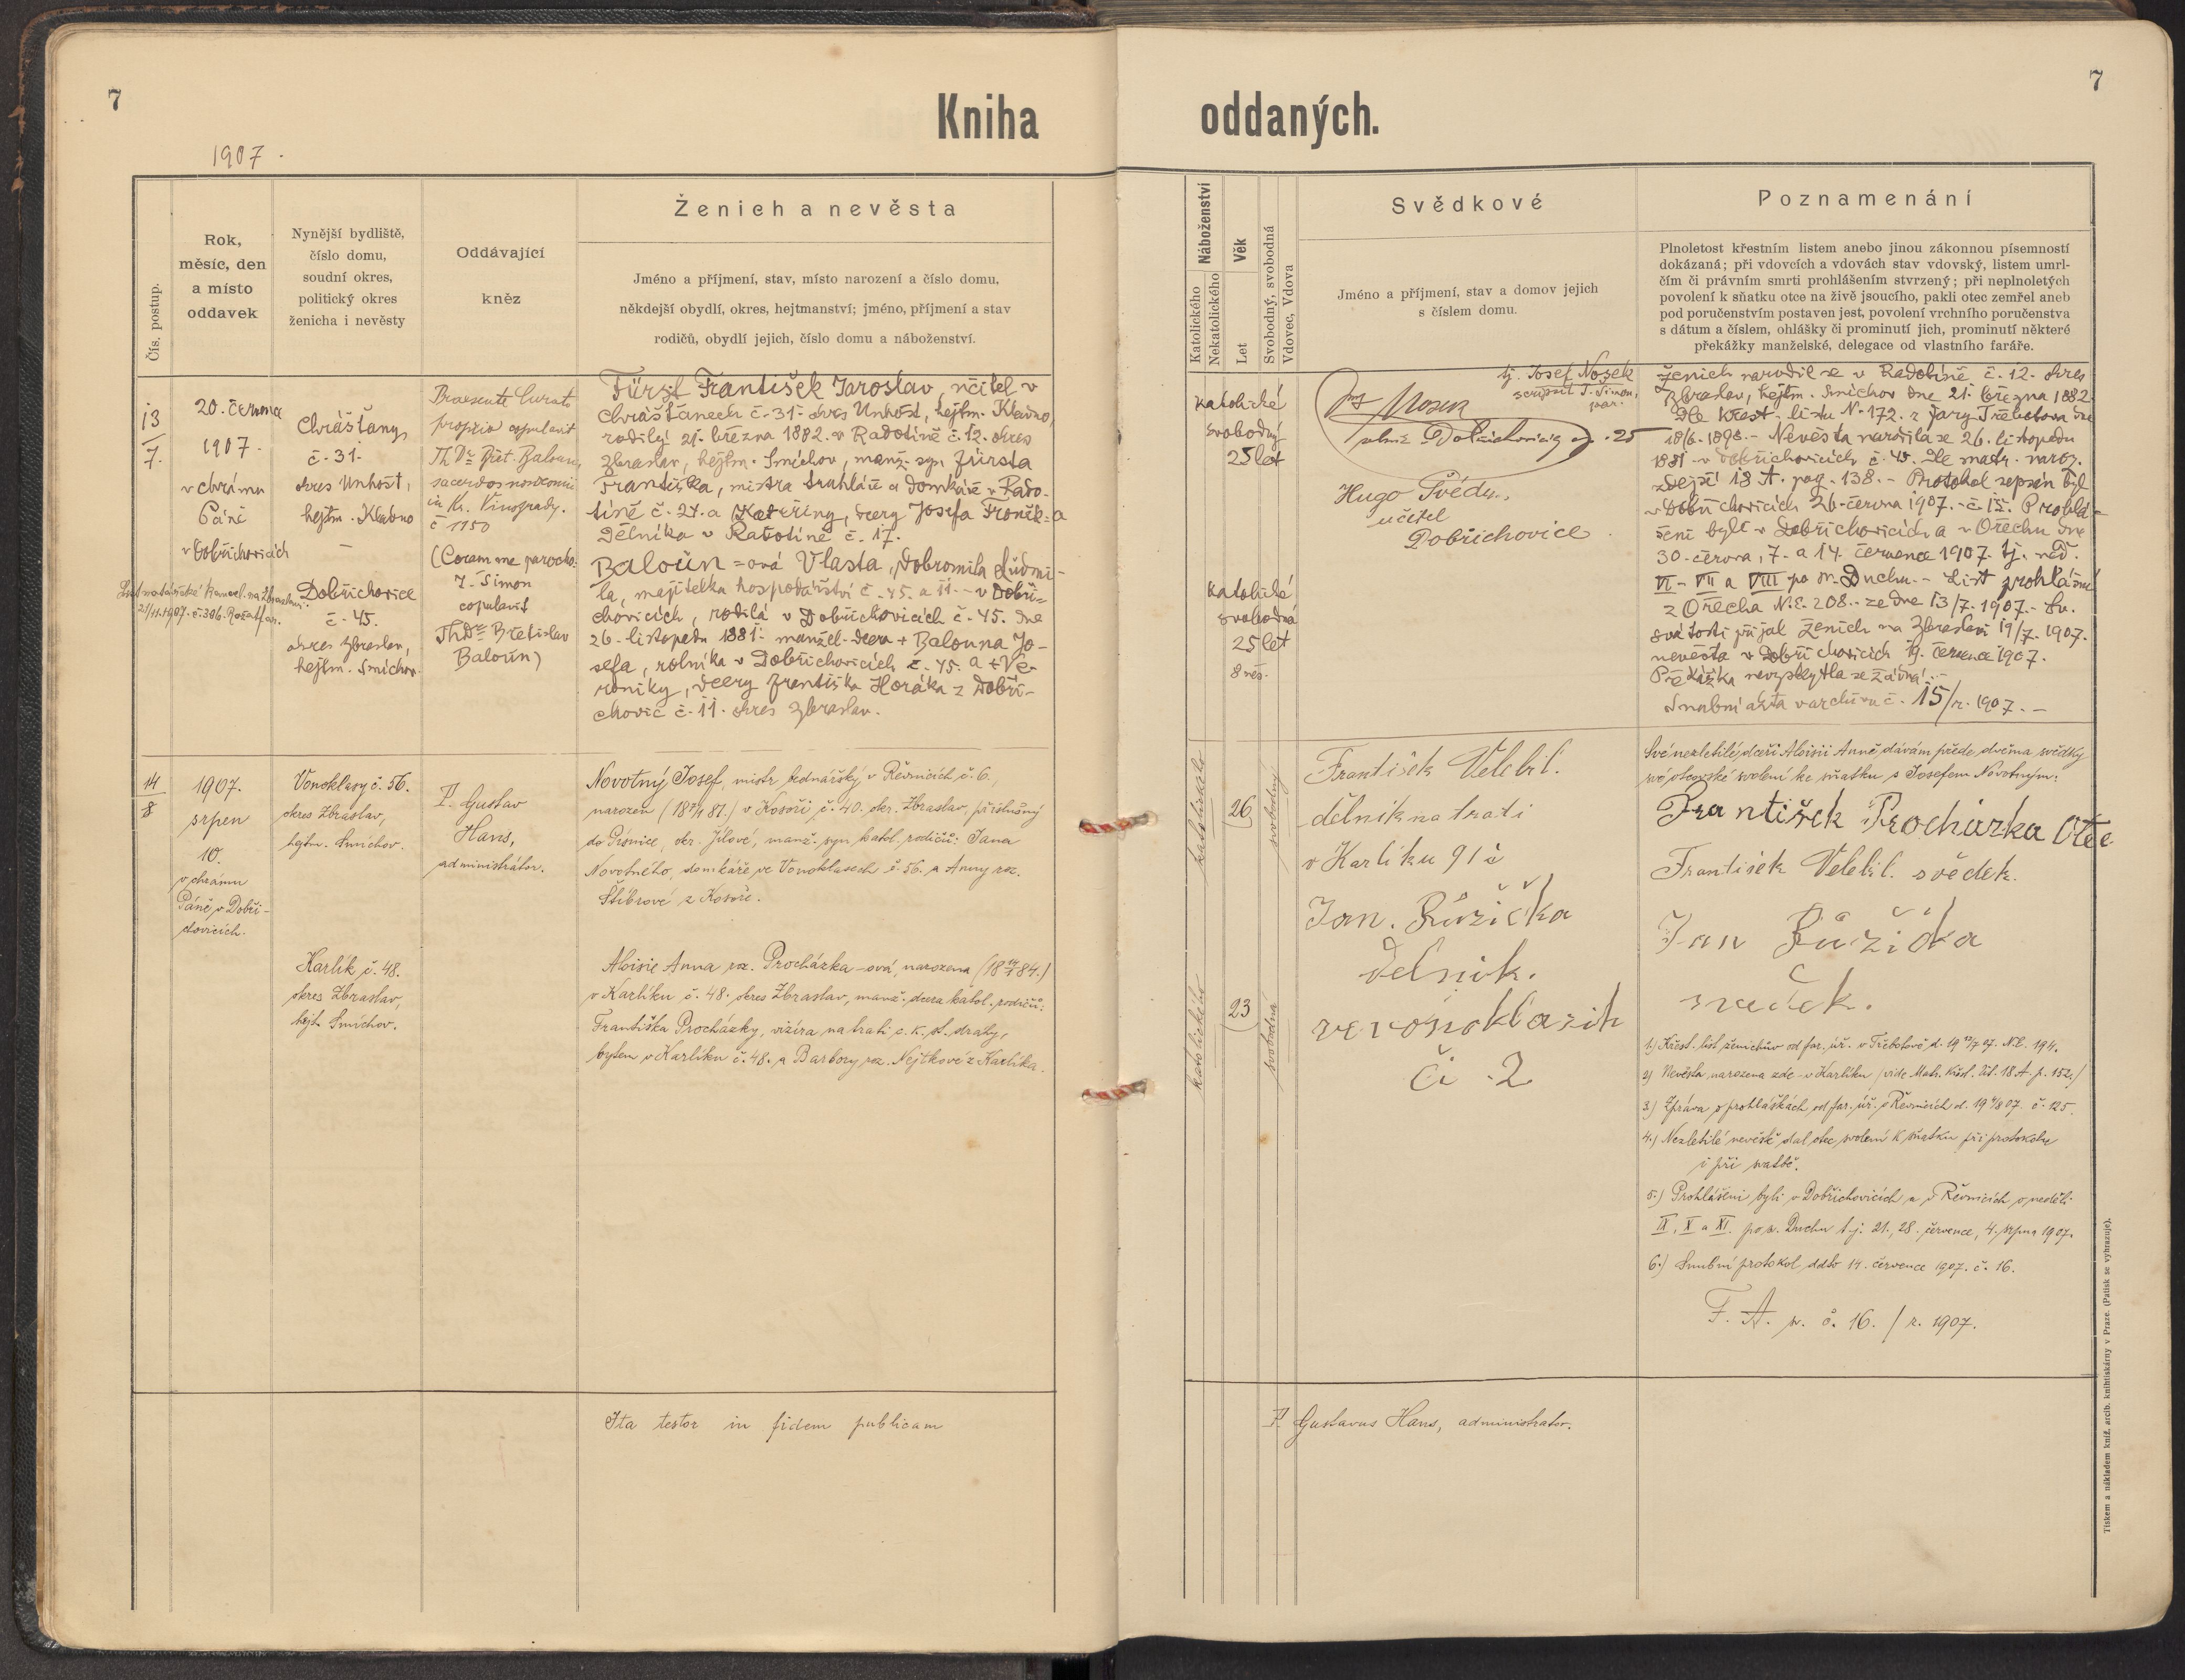 7
Kniha
oddaných.
7
1907.
Čís. postup.
Rok,
měsíc, den
a místo
oddavek
Nynější bydliště,
číslo domu,
soudní okres,
politický okres
ženicha i nevěsty
Oddávající
kněz
Ženich a nevěsta
Jméno a příjmení, stav, místo narození a číslo domu,
někdejší obydlí, okres, hejtmanství; jméno, příjmení a stav
rodičů, obydlí jejich, číslo domu a náboženství.
13
7.
20. června
1907.
v chrámu
Páně
v Dobřichovicích
Chrášťany
č. 31.
okres Unhošť,
hejtm. Kladno
—
Dobřichovice
č. 45.
okres Zbraslav,
hejtm. Smíchov.
Praesente Curato
proprio copulavit
ThDr Břet. Baloun,
sacerdos
in Kr. Vinohrady.
č 1150
(Coram me parocho
J. Šimon
copulavit
ThDr Břetislav
Baloun)
Fürst František Jaroslav, učitel v
Chrášťanech č. 31. okres Unhošť, hejtm. Kladno,
rodilý 21. března 1882. v Radotíně č. 12. okres
Zbraslav, hejtm. Smíchov, manž. syn Fürsta
Františka, mistra truhláře a domkáře v Rado-
tíně č. 24. a Kateřiny, dcery Josefa
dělníka v Radotíně č. 17.
Baloun=ová Vlasta, Dobromila Ludmi-
la, majitelka hospodářství č. 45. a 11. v Dobři-
chovicích, rodilá v Dobřichovicích č. 45. dne
26. listopadu 1881. manžel. dcera + Balouna Jo-
sefa, rolníka v Dobřichovicích č. 45. a + Ve-
roniky, dcery Františka Horáka z Dobři-
chovic č. 11. okres Zbraslav.
14
8
1907.
srpen
10.
v chrámu
Páně v Dobři-
chovicích.
Vonoklasy č. 56.
okres Zbraslav,
hejtm. Smíchov.
P. Gustav
Hans,
administrátor.
Novotný Josef, mistr bednářský v Řevnicích č. 6.,
narozen v Kosoři č. 40. okr. Zbraslav, příslušný
do Psánic, okr. Jílové, manž. syn katol. rodičů: Jana
Novotného, domkáře ve Vonoklasech č. 56. a Anny roz.
Stibrové z Kosoře.
Karlík č. 48.
okres Zbraslav,
hejt. Smíchov.
Aloisie Anna roz. Procházka-ová, narozena
v Karlíku č. 48. okres Zbraslav, manž. dcera katol. rodičů:
Františka Procházky, vizíra na trati c. k. st. dráhy,
bytem v Karlíku č. 48. a Barbory roz. Nejtkové z Karlíka.
Ita testor in fidem publicam
Náboženství
Katolického
Nekatolického
Věk
Let
Svobodný, svobodná
Vdovec, Vdova
Svědkové
Jméno a příjmení, stav a domov jejich
s číslem domu.
Poznamenání
Plnoletost křestním listem anebo jinou zákonnou písemností
dokázaná; při vdovcích a vdovách stav vdovský, listem umrl-
čím či právním smrti prohlášením stvrzený; při neplnoletých
povolení k sňatku otce na živě jsoucího, pakli otec zemřel aneb
pod poručenstvím postaven jest, povolení vrchního poručenstva
s dátum a číslem, ohlášky či prominutí jich, prominutí některé
překážky manželské, delegace od vlastního faráře.
Katolické
svobodný
25 let
Katolické
svobodná
25 let
8 měs.
tj. Josef Nosek
scripsit J. Šimon,
par.
Jos Nosek
Dobřichovicích čp. 25
Hugo Švéda,
učitel
Dobřichovice.
Ženich narodil se v Radotíně č. 12. okres
Zbraslav, hejtm. Smíchov dne 21. března 1882.
Dle křest. listu N. 172. z fary Třebotova dne
18/6. 1898. – Nevěsta narodila se 26. listopadu
1881 v Dobřichovicích č. 45. dle matr. naroz.
zdejší 18 A. pag. 138. – Protokol sepsán byl
v Dobřichovicích 26. června 1907. č. 15. Prohlá-
šeni byli v Dobřichovicích a v Ořechu dne
30. června, 7. a 14. července 1907. tj. ned.
VI – VII a VIII po sv. Duchu. – List prohlášení
z Ořecha N.E. 208. ze dne 13/7. 1907. – Sv.
svátosti přijal ženich na Zbraslavi 19/7. 1907.
nevěsta v Dobřichovicích 19. července 1907.
Překážka nevyskytla se žádná. –
Snubní akta v archivu č. 15/r. 1907. –
katolického
26
svobodný
František Velebil.
dělník na trati
v Karlíku 91 č
Jan. Růžička
Delnik.
ve vonoklasih
či .2
katolického
23
svobodná
Své nezletilé dceři Aloisii Anně dávám přede dvěma svědky
své otcovské svolení ke sňatku s Josefem Novotným:
František Procházka Otec
František Velebil. svědek.
Jan Růžička
svedek.
1.) Křest. list ženichův od far. úř. v Třebotově d. N.E. 194.
2) Nevěsta narozena zde v Karlíku (vide Matr. křest. lit. 18. A. p. 152.)
3.) Zpráva o prohláškách od far. úř. v Řevnicích d. 19 4/8 07. č. 125.
4.) Nezletilé nevěstě dal otec svolení k sňatku při protokolu
i při svatbě.
5.) Prohlášeni byli v Dobřichovicích a v Řevnicích v neděli
IX., X a XI. po sv. Duchu t. j. 21., 28. července, 4. srpna 1907.
6.) Snubní protokol ddto 14. července 1907. č. 16.
F. A. p. č. 16. / r. 1907.
P. Gustavus Hans, administrator.
Tiskem a nákladem kníž. arcib. knihtiskárny v Praze. (Patisk se vyhrazuje).